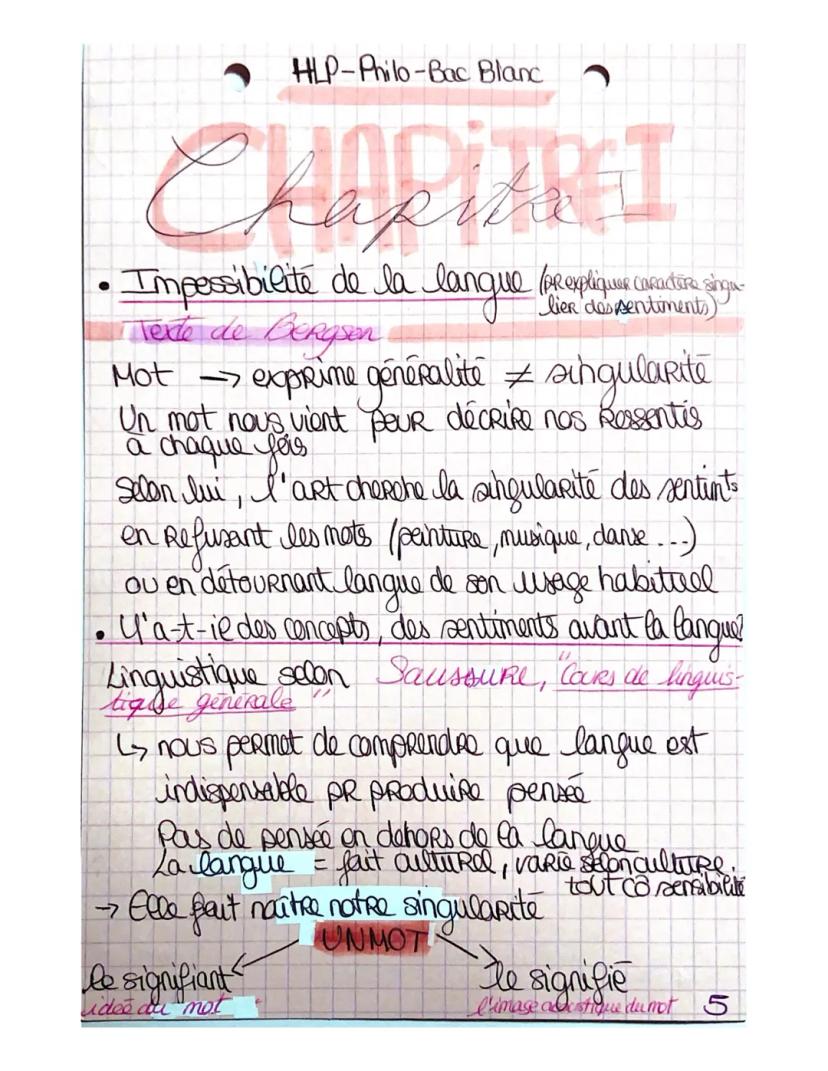 HLP-Philo-Bac Blanc
CHAPITRE I
Chapitre I
• Impossibilité de la langue (pr expliquer caractère singu-
lier des sentiments)
Texte de Bergson
Mot → exprime généralité ≠ singularité
Un mot nous vient pour décrire nos ressentis
à chaque fois
Selon lui, l'art cherche la singularité des sentints
en refusant les mots (peinture, musique, danse...)
ou en détournant langue de son usage habituel
• Y'a-t-il des concepts, des sentiments avant la langue?
Linguistique selon Saussure, "Cours de linguis-
tique générale"
↳ nous permet de comprendre que langue est
indispensable pr produire pensée
Pas de pensée en dehors de la langue
La langue = fait culturel, varie selon culture,
tout cô sensibilité
→ Elle fait naître notre singularité
UN MOT
le signifiant
le signifié
idée du mot
l'image acoustique du mot
5